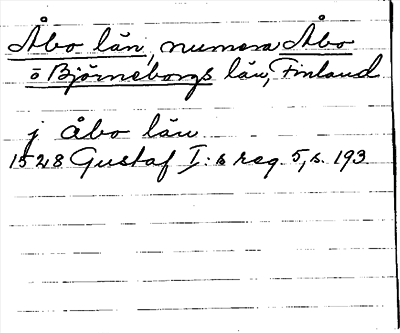 Åbo län, numera Åbo
o Björneborgs län, Finland
j åbo län
1528 Gustaf I:s reg. 5, s. 193